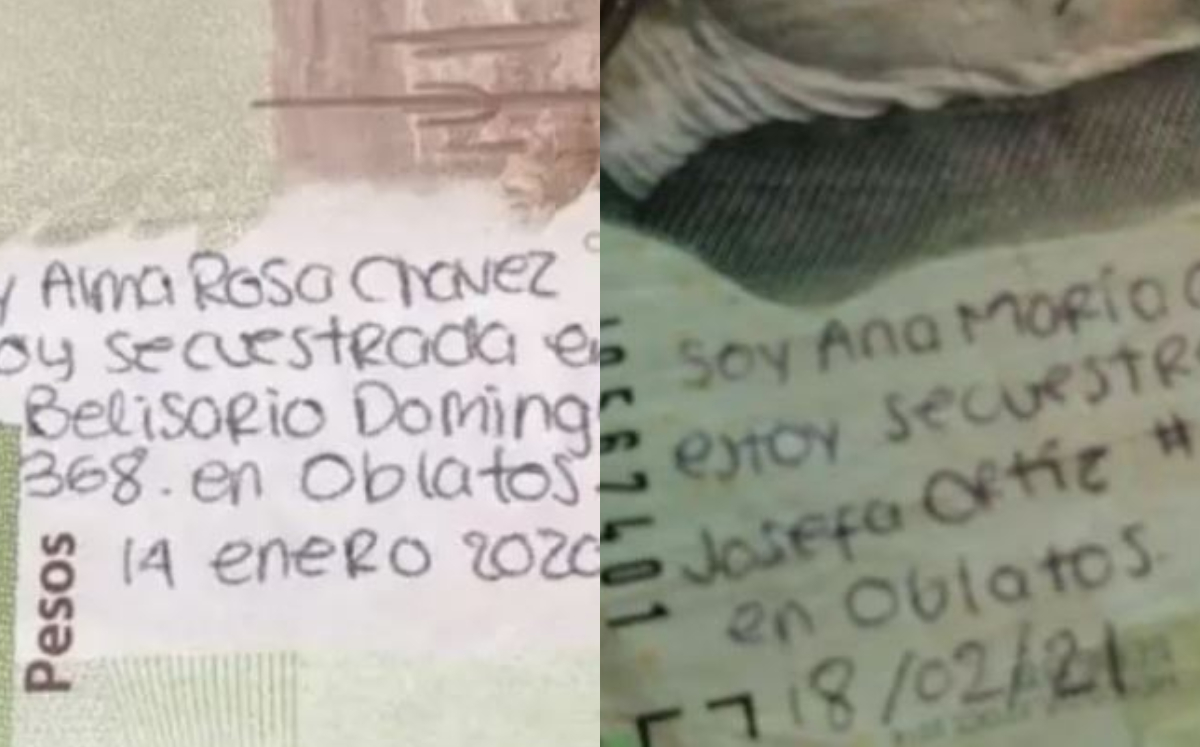 y Alma Rosa Chavez
oy secuestrada en
Belisario Doming
368. en Oblatos.
14 enero 2020
Pesos
Soy Ana María
estoy secuestr
Josefa Ortiz #
en Oblatos.
18/02/21